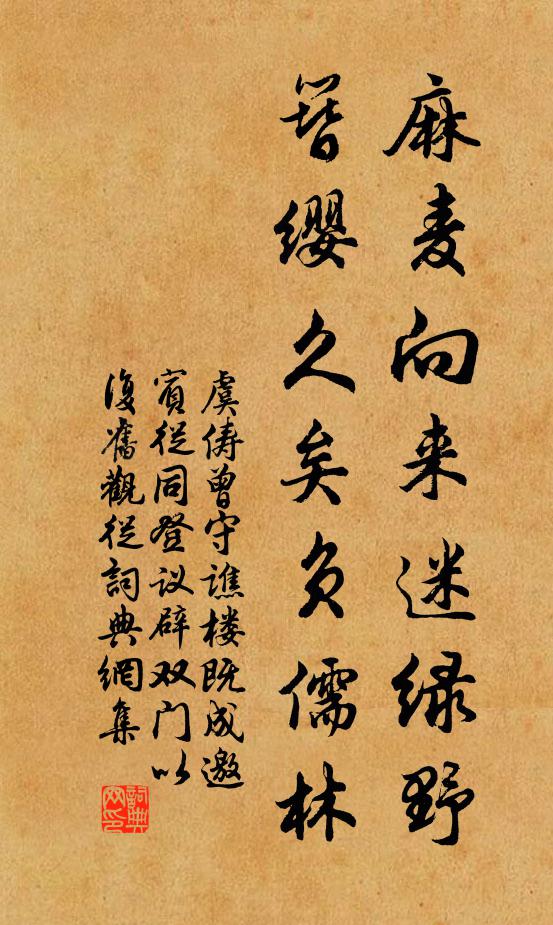 麻麦向来迷绿野
簪缨久矣负儒林
虞俦曾守谯楼既成邀
宾从同登议辟双门以
复旧觀從詞典網集
詞典網印